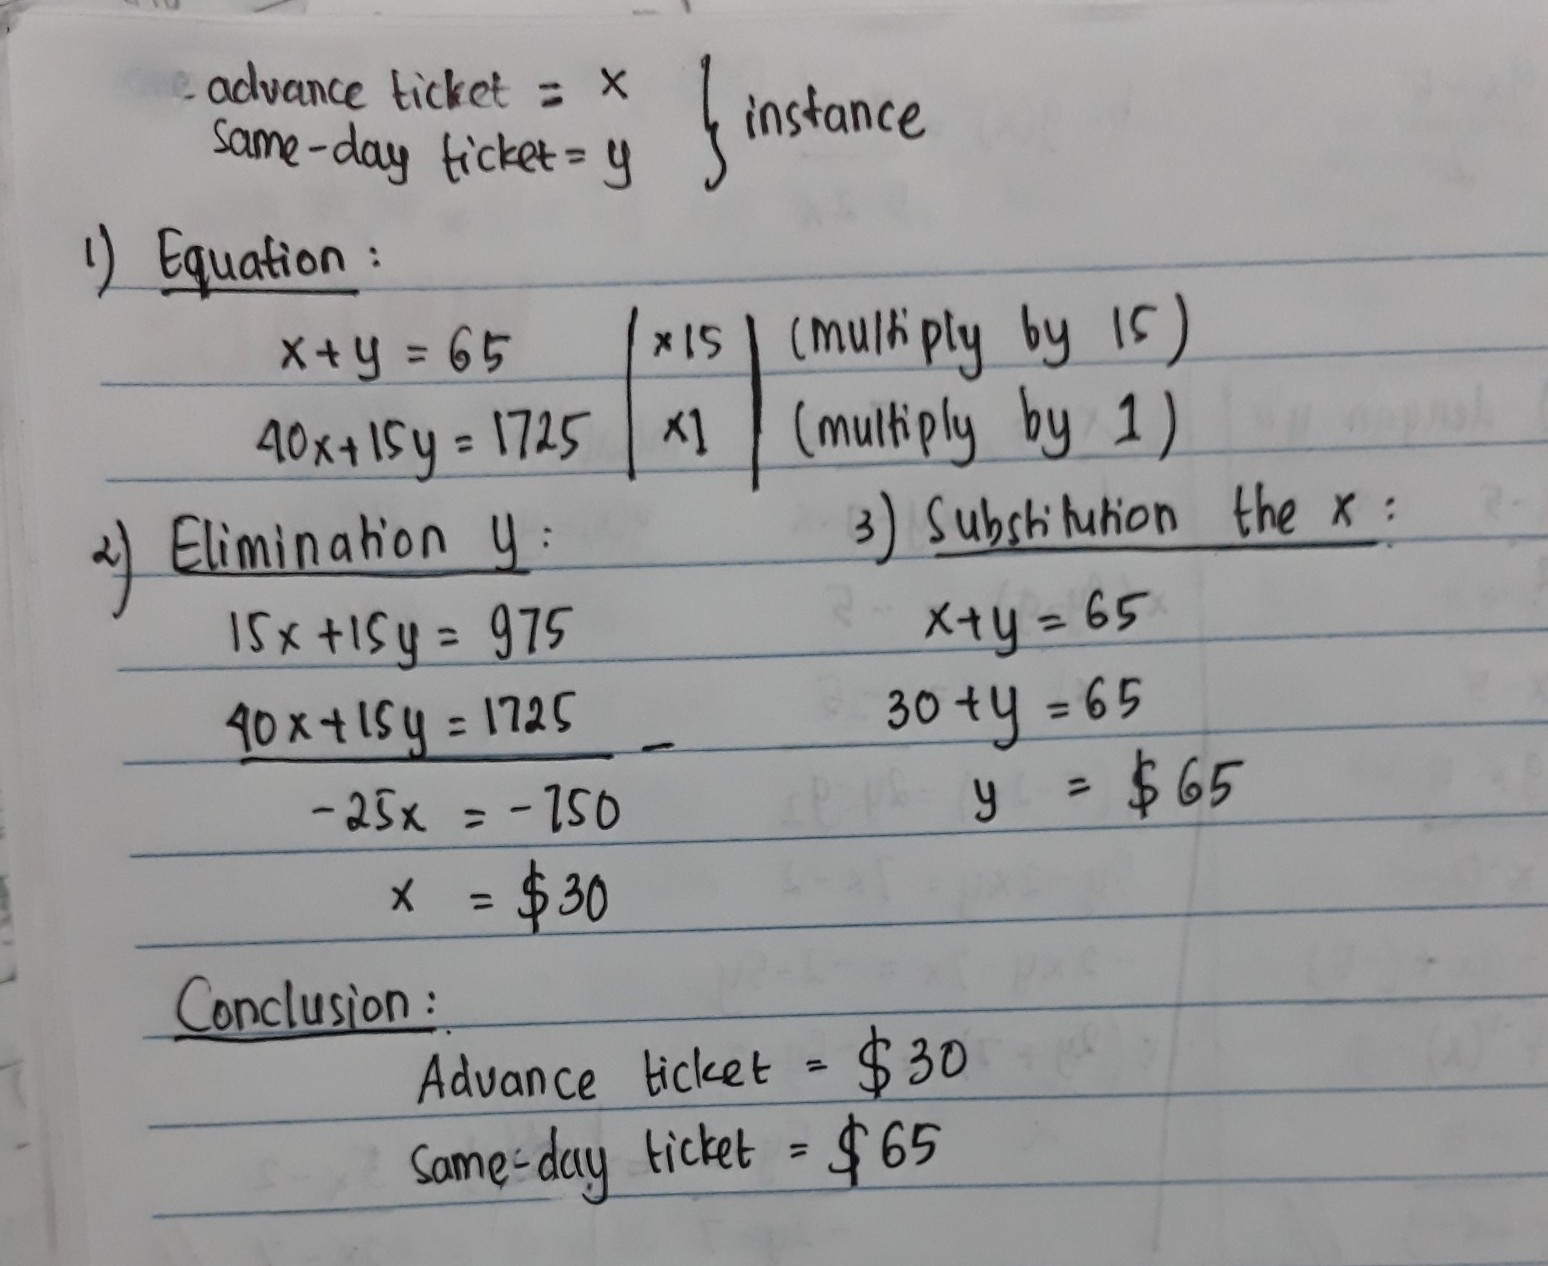 advance ticket = x } instance
same-day ticket = y
1) Equation :
x + y = 65 | ×15 | (multiply by 15)
40x + 15y = 1725 | ×1 | (multiply by 1)
2) Elimination y :
15x + 15y = 975
40x + 15y = 1725 -
-25x = -750
x = $30
3) Substitution the x :
x + y = 65
30 + y = 65
y = $65
Conclusion :
Advance ticket = $30
Same-day ticket = $65